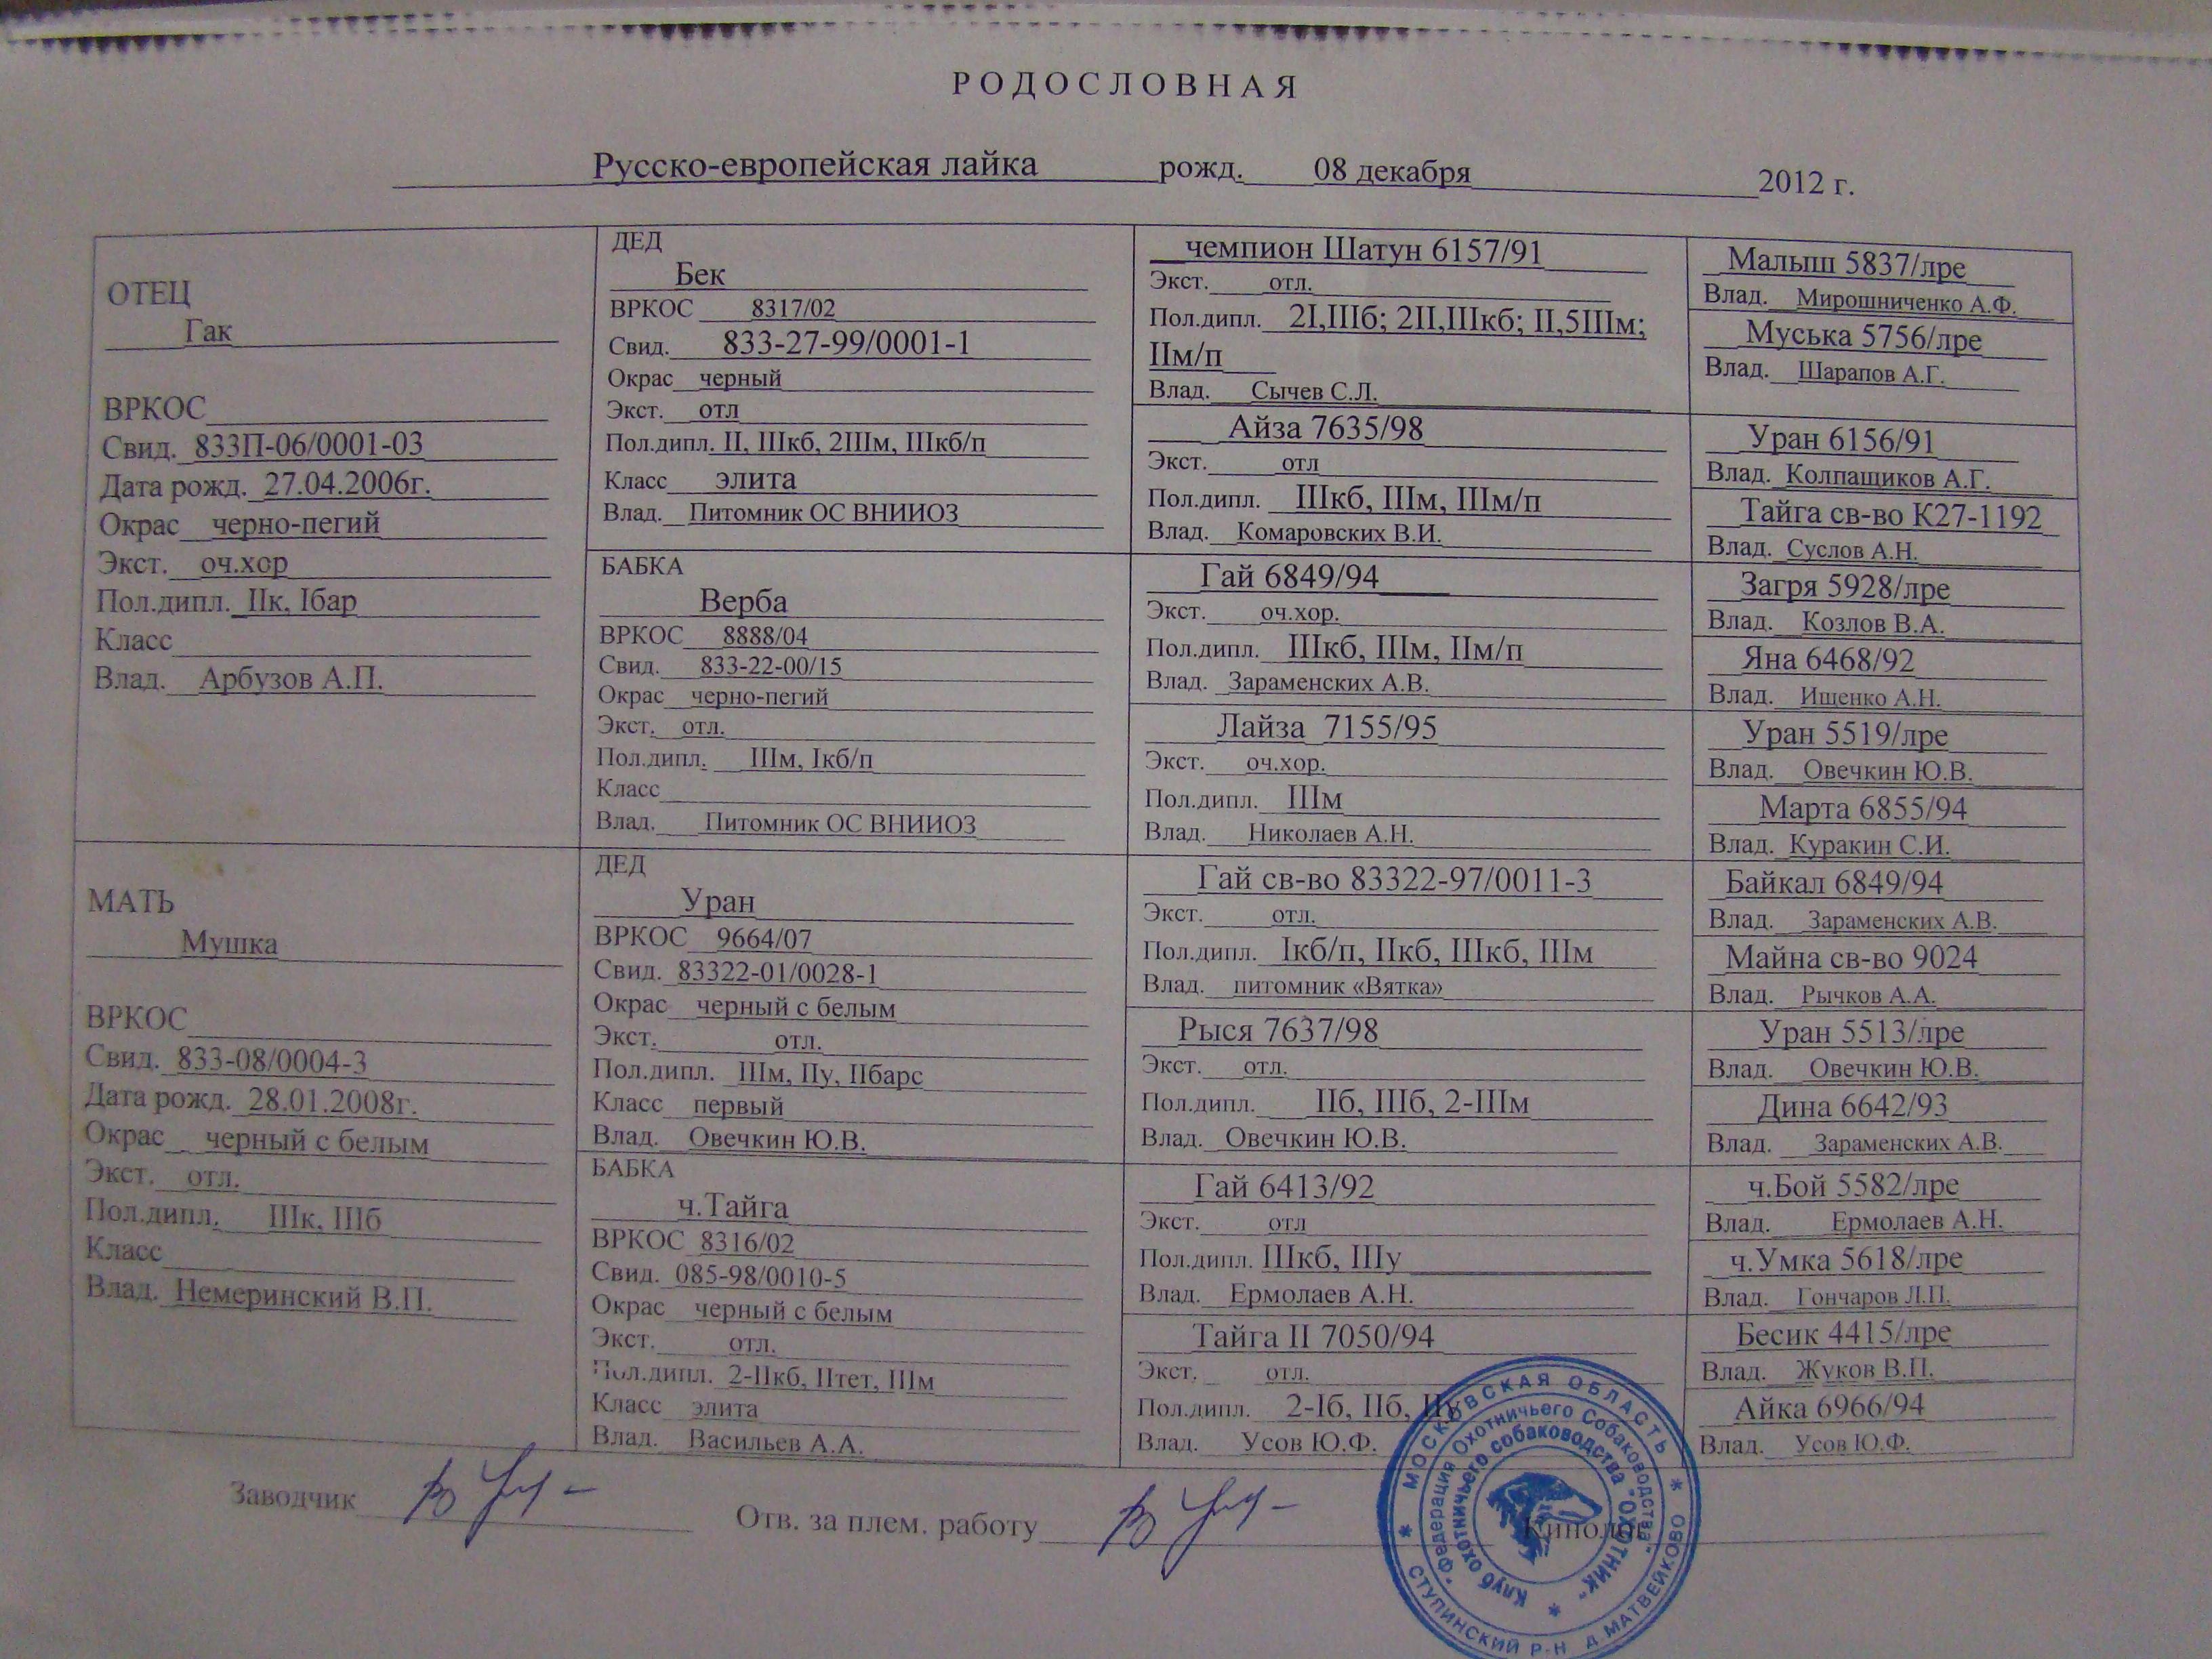 РОДОСЛОВНАЯ
Русско-европейская лайка рожд. 08 декабря 2012 г.
ОТЕЦ
Гак
ВРКОС
Свид. 833П-06/0001-03
Дата рожд. 27.04.2006г.
Окрас черно-пегий
Экст. оч.хор
Пол.дипл. IIк, Iбар
Класс
Влад. Арбузов А.П.
МАТЬ
Мушка
ВРКОС
Свид. 833-08/0004-3
Дата рожд. 28.01.2008г.
Окрас черный с белым
Экст. отл.
Пол.дипл. IIIк, IIIб
Класс
Влад. Немеринский В.П.
ДЕД
Бек
ВРКОС 8317/02
Свид. 833-27-99/0001-1
Окрас черный
Экст. отл
Пол.дипл. II, IIIкб, 2IIIм, IIIкб/п
Класс элита
Влад. Питомник ОС ВНИИОЗ
БАБКА
Верба
ВРКОС 8888/04
Свид. 833-22-00/15
Окрас черно-пегий
Экст. отл.
Пол.дипл. IIIм, Iкб/п
Класс
Влад. Питомник ОС ВНИИОЗ
ДЕД
Уран
ВРКОС 9664/07
Свид. 83322-01/0028-1
Окрас черный с белым
Экст. отл.
Пол.дипл. IIIм, IIу, IIбарс
Класс первый
Влад. Овечкин Ю.В.
БАБКА
ч.Тайга
ВРКОС 8316/02
Свид. 085-98/0010-5
Окрас черный с белым
Экст. отл.
Пол.дипл. 2-IIкб, IIтет, IIIм
Класс элита
Влад. Васильев А.А.
чемпион Шатун 6157/91
Экст. отл.
Пол.дипл. 2I,IIIб; 2II,IIIкб; II,5IIIм;
IIм/п
Влад. Сычев С.Л.
Айза 7635/98
Экст. отл
Пол.дипл. IIIкб, IIIм, IIIм/п
Влад. Комаровских В.И.
Гай 6849/94
Экст. оч.хор.
Пол.дипл. IIIкб, IIIм, IIм/п
Влад. Зараменских А.В.
Лайза 7155/95
Экст. оч.хор.
Пол.дипл. IIIм
Влад. Николаев А.Н.
Гай св-во 83322-97/0011-3
Экст. отл.
Пол.дипл. Iкб/п, IIкб, IIIкб, IIIм
Влад. питомник «Вятка»
Рыся 7637/98
Экст. отл.
Пол.дипл. IIб, IIIб, 2-IIIм
Влад. Овечкин Ю.В.
Гай 6413/92
Экст. отл
Пол.дипл. IIIкб, IIIу
Влад. Ермолаев А.Н.
Тайга II 7050/94
Экст. отл.
Пол.дипл. 2-Iб, IIб, IIу
Влад. Усов Ю.Ф.
Малыш 5837/лре
Влад. Мирошниченко А.Ф.
Муська 5756/лре
Влад. Шарапов А.Г.
Уран 6156/91
Влад. Колпащиков А.Г.
Тайга св-во К27-1192
Влад. Суслов А.Н.
Загря 5928/лре
Влад. Козлов В.А.
Яна 6468/92
Влад. Ищенко А.Н.
Уран 5519/лре
Влад. Овечкин Ю.В.
Марта 6855/94
Влад. Куракин С.И.
Байкал 6849/94
Влад. Зараменских А.В.
Майна св-во 9024
Влад. Рычков А.А.
Уран 5513/лре
Влад. Овечкин Ю.В.
Дина 6642/93
Влад. Зараменских А.В.
ч.Бой 5582/лре
Влад. Ермолаев А.Н.
ч.Умка 5618/лре
Влад. Гончаров Л.П.
Бесик 4415/лре
Влад. Жуков В.П.
Айка 6966/94
Влад. Усов Ю.Ф.
Заводчик
Отв. за плем. работу
Кинолог
МОСКОВСКАЯ ОБЛАСТЬ
СТУПИНСКИЙ Р-Н д.МАТВЕЙКОВО
"Федерация Охотничьего Собаководства"
Клуб охотничьего собаководства "ОХОТНИК"